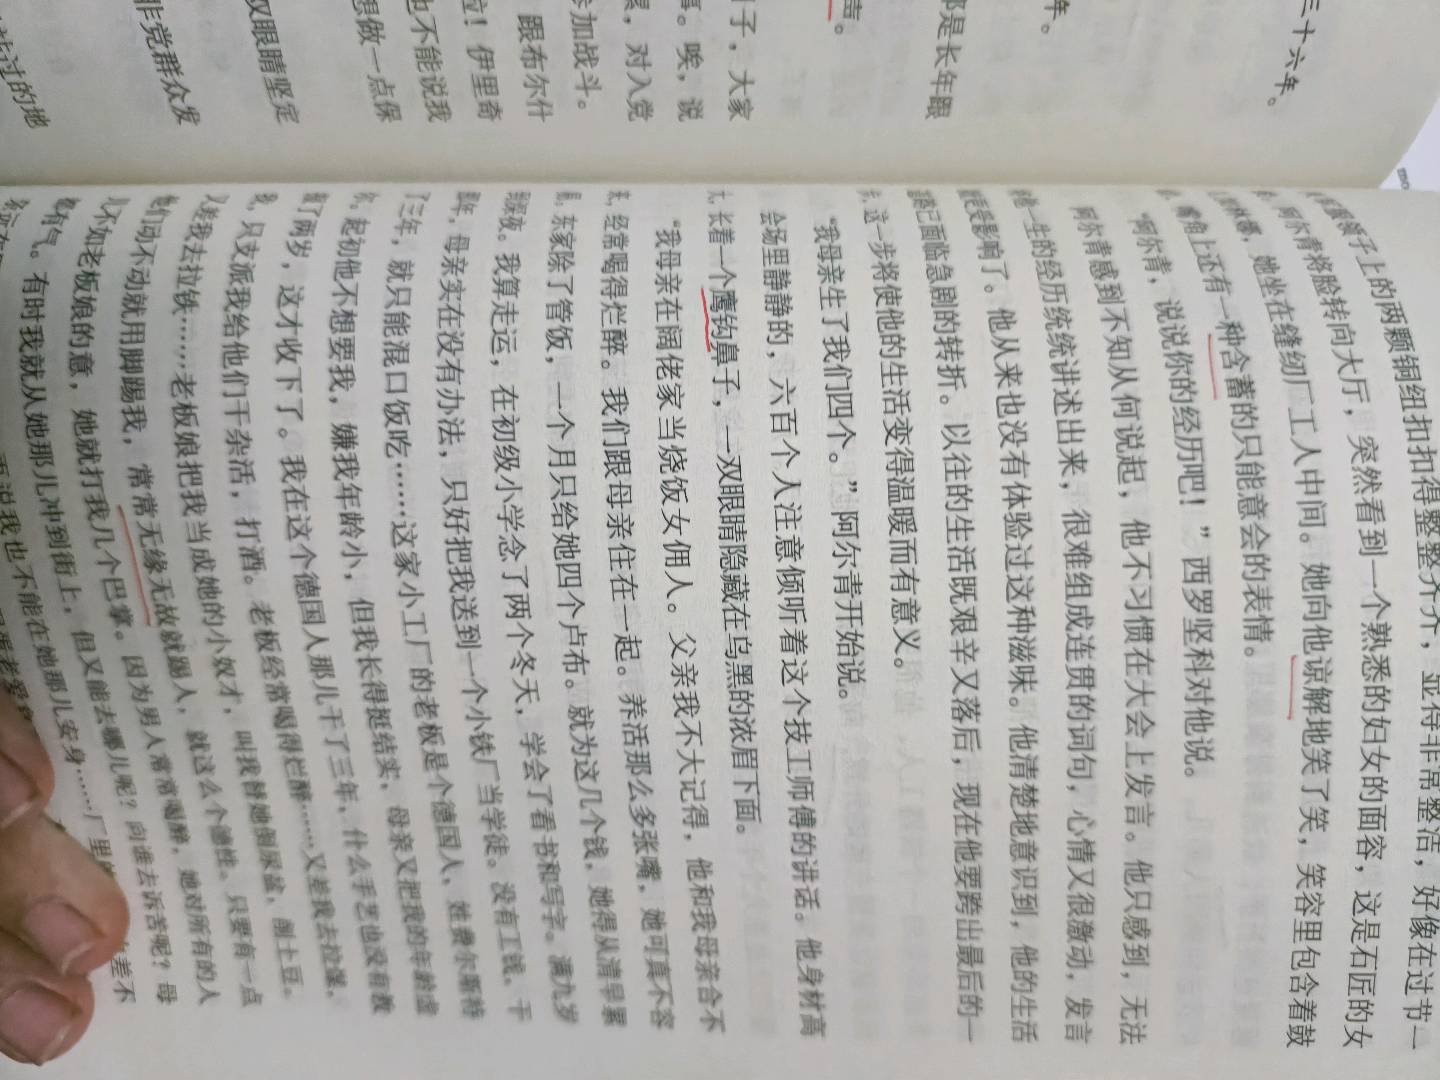 三十六年。
年。
都是长年跟
声。
子，大家
事。唉，说
，对入党
参加战斗。
跟布尔什
！伊里奇
也不能说我
想做一点保
双眼睛坚定
非党群众发
站过的地
子上的两颗铜纽扣扣得整整齐齐，显得非常整洁，好像在过节一
阿尔青将脸转向大厅，突然看到一个熟悉的妇女的面容，这是石匠的女
她坐在缝纫厂工人中间。她向他谅解地笑了笑，笑容里包含着鼓
嘴角上还有一种含蓄的只能意会的表情。
“阿尔青，说说你的经历吧！”西罗坚科对他说。
阿尔青感到不知从何说起，他不习惯在大会上发言。他只感到，无法
一生的经历统统讲述出来，很难组成连贯的词句，心情又很激动，发言
受影响了。他从来也没有体验过这种滋味。他清楚地意识到，他的生活
已面临急剧的转折。以往的生活既艰辛又落后，现在他要跨出最后的一
这一步将使他的生活变得温暖而有意义。
“我母亲生了我们四个。”阿尔青开始说。
会场里静静的，六百个人注意倾听着这个技工师傅的讲话。他身材高
大，长着一个鹰钩鼻子，一双眼睛隐藏在乌黑的浓眉下面。
“我母亲在阔佬家当烧饭女佣人。父亲我不大记得，他和我母亲合不
来，经常喝得烂醉。我们跟母亲住在一起。养活那么多张嘴，她可真不容
易，东家除了管饭，一个月只给她四个卢布。就为这几个钱，她得从清早累
到深夜。我算走运，在初级小学念了两个冬天，学会了看书和写字。满九岁
那年，母亲实在没有办法，只好把我送到一个小铁厂当学徒。没有工钱，干
了三年，就只能混口饭吃……这家小工厂的老板是个德国人，姓费尔斯特
尔。起初他不想要我，嫌我年龄小，但我长得挺结实，母亲又把我的年龄虚
报了两岁，这才收下了。我在这个德国人那儿干了三年，什么手艺也没有教
我，只支派我给他们干杂活，打酒。老板经常喝得烂醉……又差我去拉煤，
又差我去拉铁……老板娘把我当成她的小奴才，叫我替她倒尿盆，削土豆。
他们动不动就用脚踢我，常常无缘无故就踢人，就这么个德性。只要有一点
儿不如老板娘的意，她就打我几个巴掌。因为男人常常喝醉，她对所有的人
都有气。有时我就从她那儿冲到街上，但又能去哪儿呢？向谁去诉苦呢？母
再说我也不能在她那儿安身……厂里